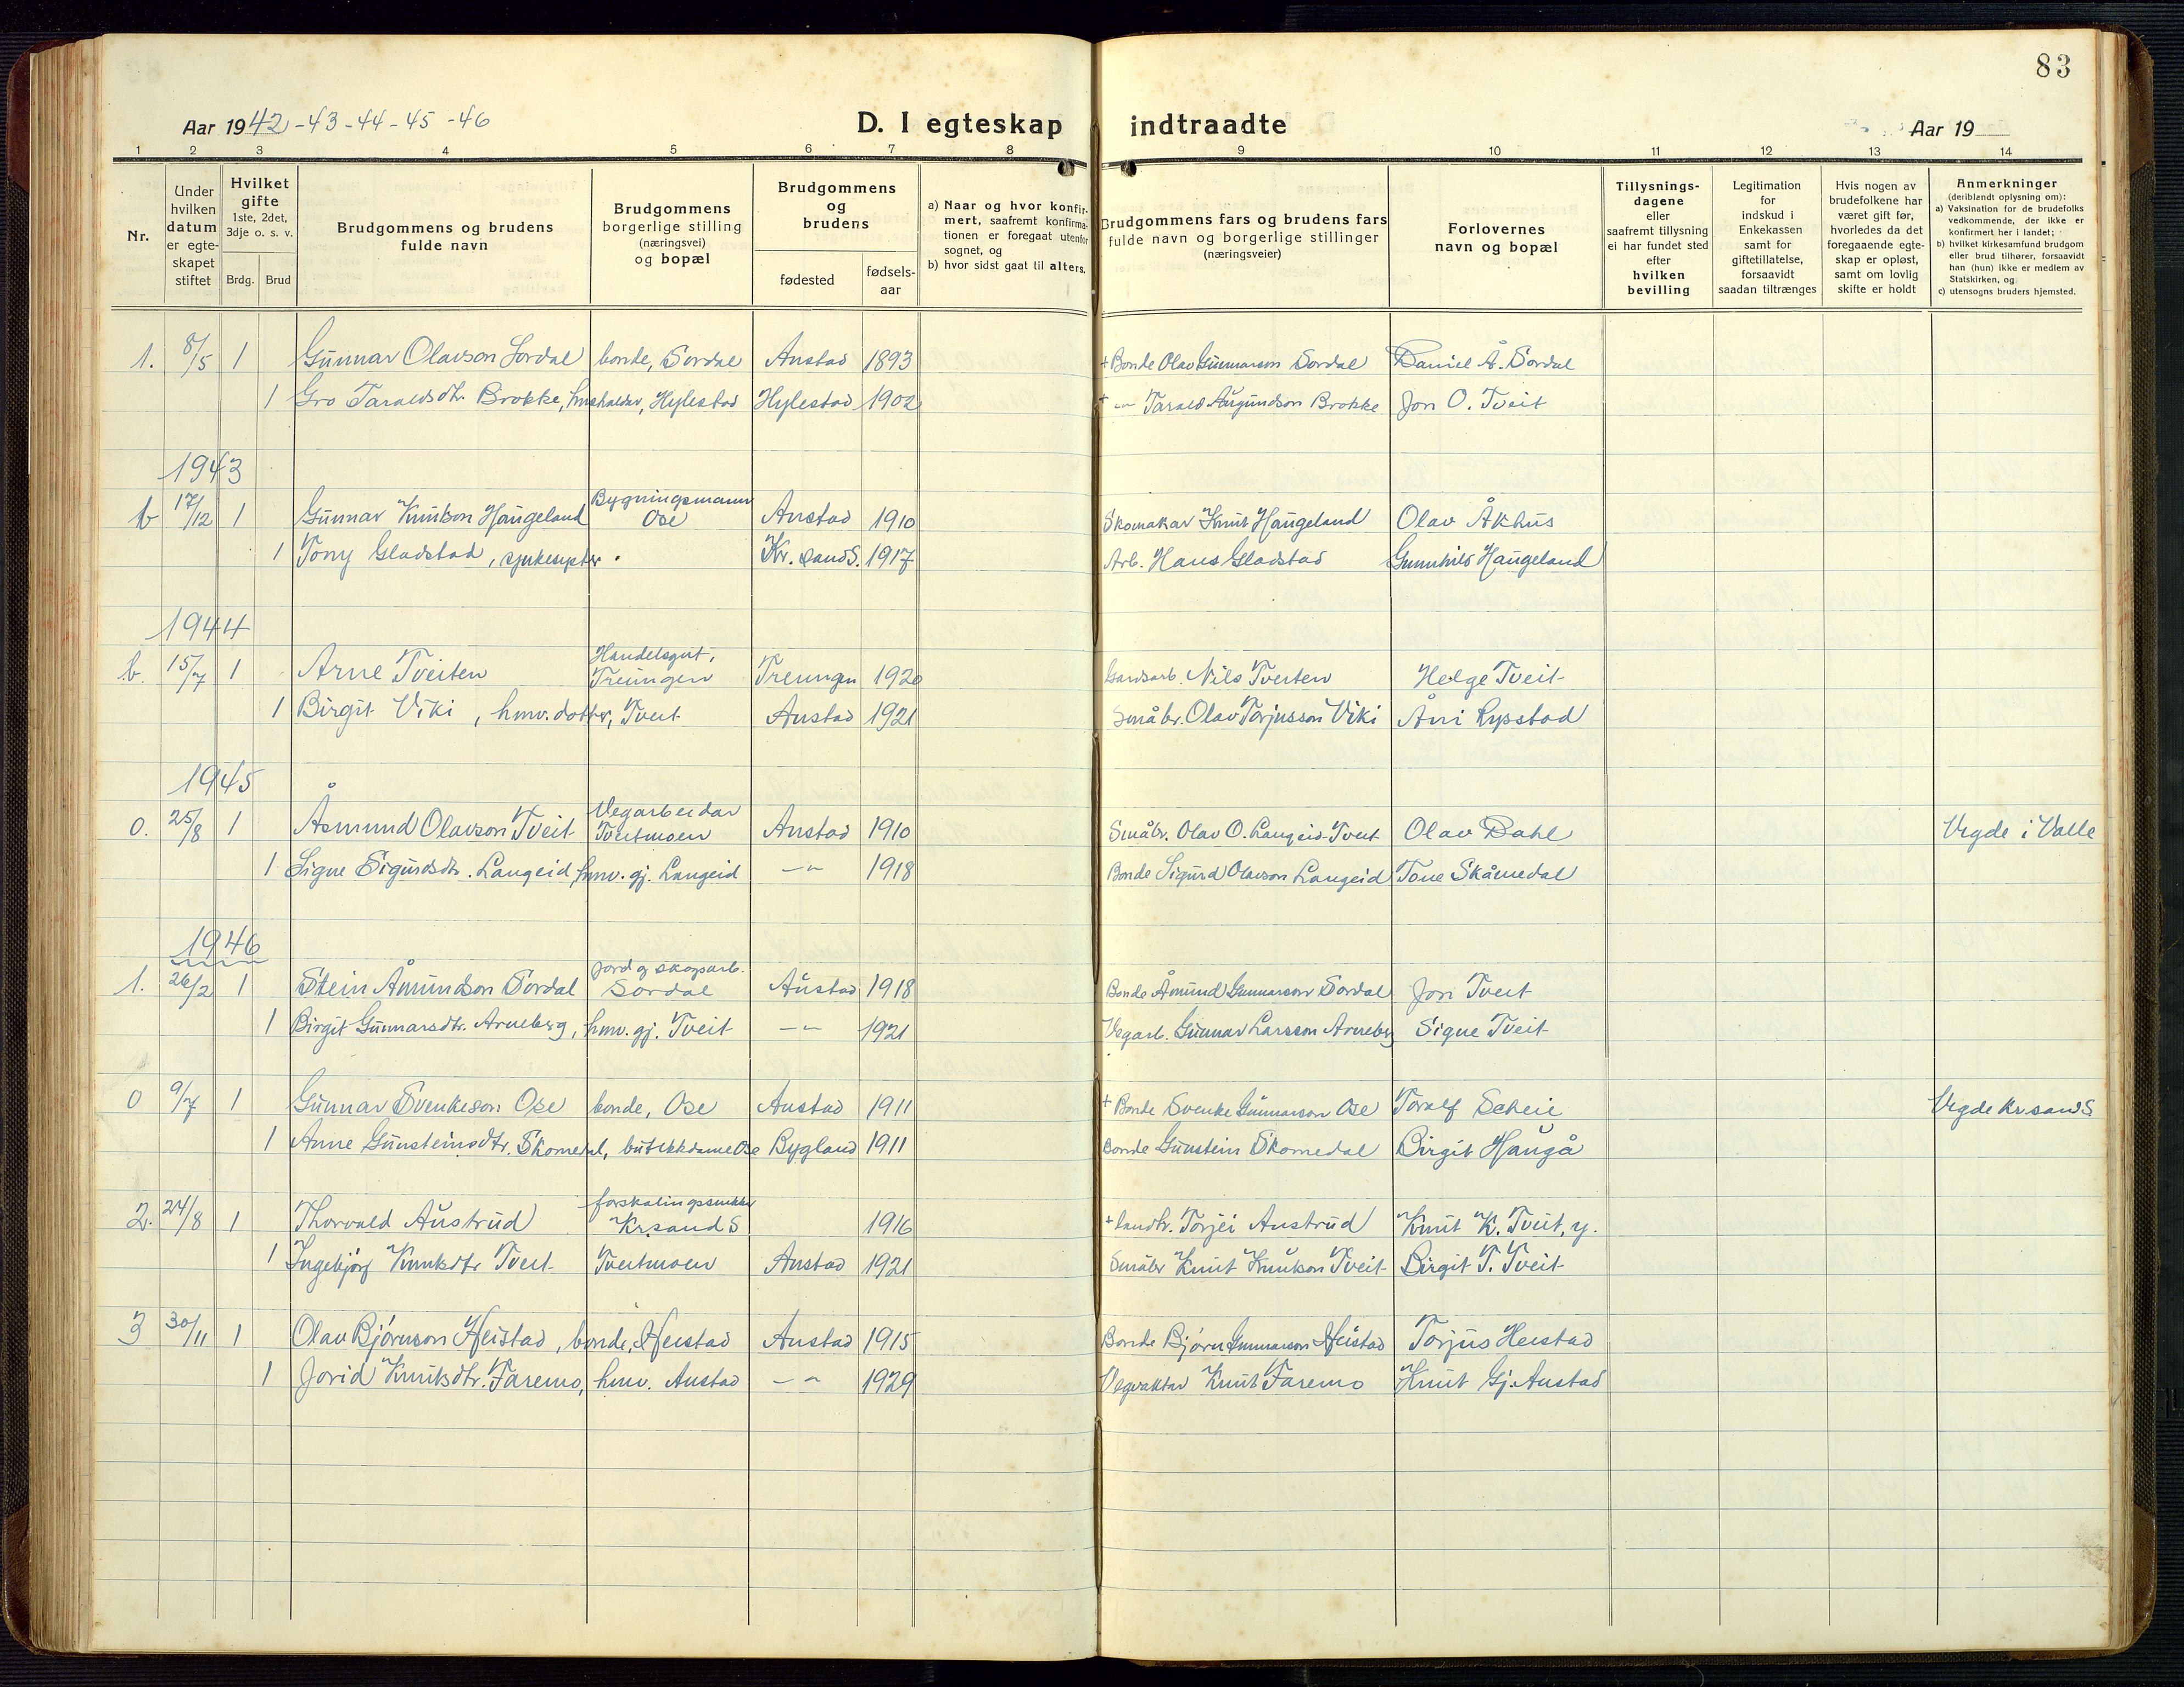 83
Aar 1942-43-44-45-46 D. I egteskap indtraadte Aar 19
1 2 3 4 5 6 7 8 9 10 11 12 13 14
Nr.
Under hvilken datum er egteskapet stiftet
Hvilket gifte 1ste, 2det, 3dje o. s. v.
Brdg. Brud
Brudgommens og brudens fulde navn
Brudgommens borgerlige stilling (næringsvei) og bopæl
Brudgommens og brudens
fødested
fødselsaar
a) Naar og hvor konfirmert, saafremt konfirmationen er foregaat utenfor sognet, og
b) hvor sidst gaat til alters.
Brudgommens fars og brudens fars fulde navn og borgerlige stillinger (næringsveier)
Forlovernes navn og bopæl
Tillysningsdagene eller saafremt tillysning ei har fundet sted efter hvilken bevilling
Legitimation for indskud i Enkekassen samt for giftetillatelse, forsaavidt saadan tiltrænges
Hvis nogen av brudefolkene har været gift før, hvorledes da det foregaaende egteskap er opløst, samt om lovlig skifte er holdt
Anmerkninger (deriblandt oplysning om):
a) Vaksination for de brudefolks vedkommende, der ikke er konfirmert her i landet;
b) hvilket kirkesamfund brudgom eller brud tilhører, forsaavidt han (hun) ikke er medlem av Statskirken, og
c) utensogns bruders hjemsted.
1. 8/5 1 Gunnar Olavson Sordal bonde, Sordal Austad 1893 + Bonde Olav Gunnarson Sordal Daniel Å. Sordal
1 Gro Taraldsdtr. Brokke, hushaldar, Hylestad Hylestad 1902 + -"- Tarald Augundson Brokke Jon O. Tveit
1943
b 17/12 1 Gunnar Knutson Haugeland Bygningsmann Ose Austad 1910 Skomakar Knut Haugeland Olav Åkhus
1 Tony Gladstad, sjukesyster Kr.sand S. 1917 Arb. Hans Gladstad Gunnhild Haugeland
1944
b. 15/7 1 Arne Tveiten Handelsgut, Treungen Treungen 1920 Gardsarb. Nils Tveiten Helge Tveit
1 Birgit Viki, hmv. dotter, Tveit Austad 1921 Småbr. Olav Torjusson Viki Åni Rysstad
1945
0. 25/8 1 Åsmund Olavson Tveit Vegarbeidar Tveitmoen Austad 1910 Småbr. Olav O. Langeid-Tveit Olav Dahl Vigde i Valle
1 Signe Sigurdsdtr. Langeid, hmv. gj. Langeid -"- 1918 Bonde Sigurd Olavson Langeid Tone Skåmedal
1946
1. 26/2 1 Stein Åmundson Sordal Jord og skogsarb. Sordal Austad 1918 Bonde Åmund Gunnarson Sordal Jon Tveit
1 Birgit Gunnarsdtr. Arneberg, hmv. gj. Tveit -"- 1921 Vegarb. Gunnar Larsson Arneberg Signe Tveit
0 9/7 1 Gunnar Svenkeson Ose bonde, Ose Austad 1911 + Bonde Svenke Gunnarson Ose Toralf Scheie Vigde Kr.sand S
1 Anne Gunsteinsdtr. Skomedal, butikkdame Ose Bygland 1911 Bonde Gunstein Skomedal Birgit Haugå
2. 24/8 1 Thorvald Austrud Kr.sand S 1916 + Torjei Austrud Knut K. Tveit, y.
1 Ingebjørg Knutsdtr Tveit Tveitmoen Austad 1921 Småbr Knut Knutson Tveit Birgit T. Tveit
3 30/11 1 Olav Bjørnson Heistad, bonde, Heistad Austad 1915 Bonde Bjørn Gunnarson Heistad Torjus Heistad
1 Jorid Knutsdtr. Faremo, hmv. Austad -"- 1929 Vegvaktar Knut Faremo Knut Gj. Austad